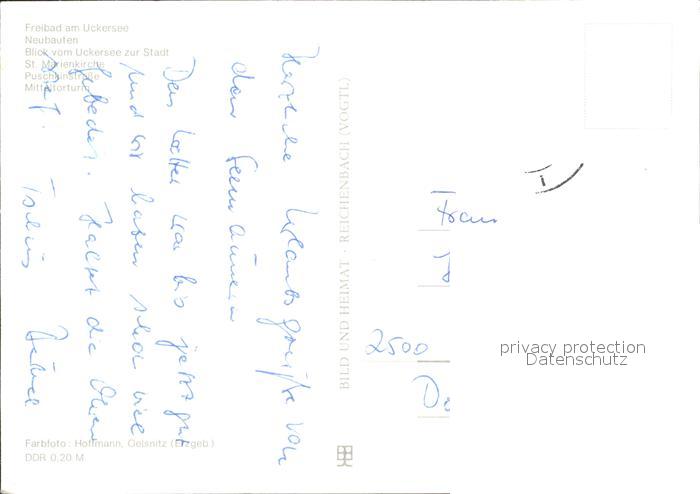 Freibad am Uckersee
Neubauten
Blick vom Uckersee zur Stadt
St. Marienkirche
Puschkinstraße
Mitteltorturm
Herzliche Urlaubsgrüße von
den
Das Wetter war bis jetzt gut
und wir haben schon viel
gebadet. Haltet die Ohren
steif. Tschüs
BILD UND HEIMAT · REICHENBACH (VOGTL)
Frau
2500
privacy protection
Datenschutz
Farbfoto: Hoffmann, Oelsnitz (Erzgeb.)
DDR 0,20 M